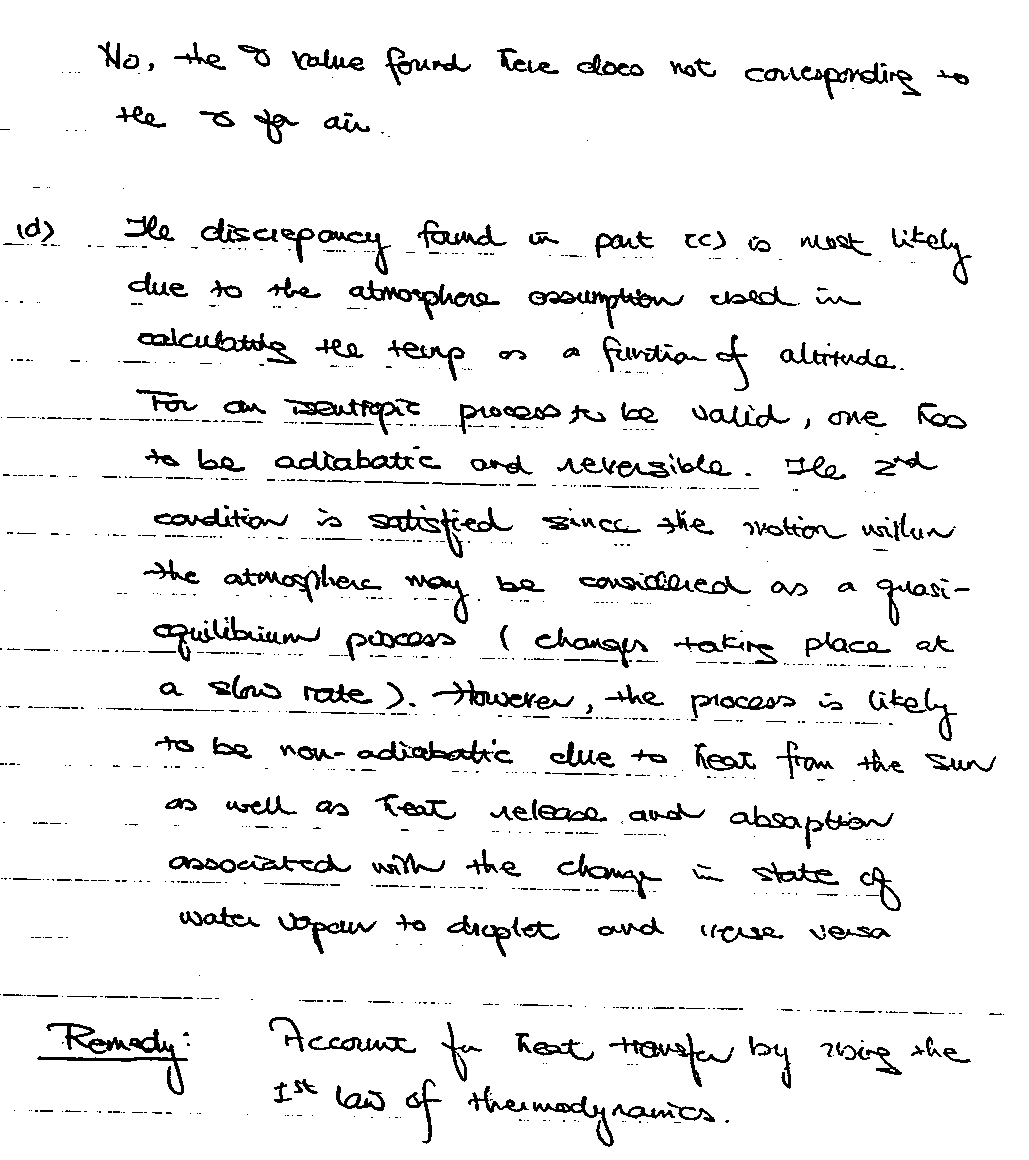 No, the γ value found here does not corresponding to
the γ for air.
(d) The discrepancy found in part (c) is most likely
due to the atmosphere assumption used in
calculating the temp as a function of altitude.
For an isentropic process to be valid, one has
to be adiabatic and reversible. The 2nd
condition is satisfied since the motion within
the atmosphere may be considered as a quasi-
equilibrium process (changes taking place at
a slow rate). However, the process is likely
to be non-adiabatic due to heat from the sun
as well as heat release and absorption
associated with the change in state of
water vapour to droplet and versa
Remedy: Account for heat transfer by using the
1st law of thermodynamics.